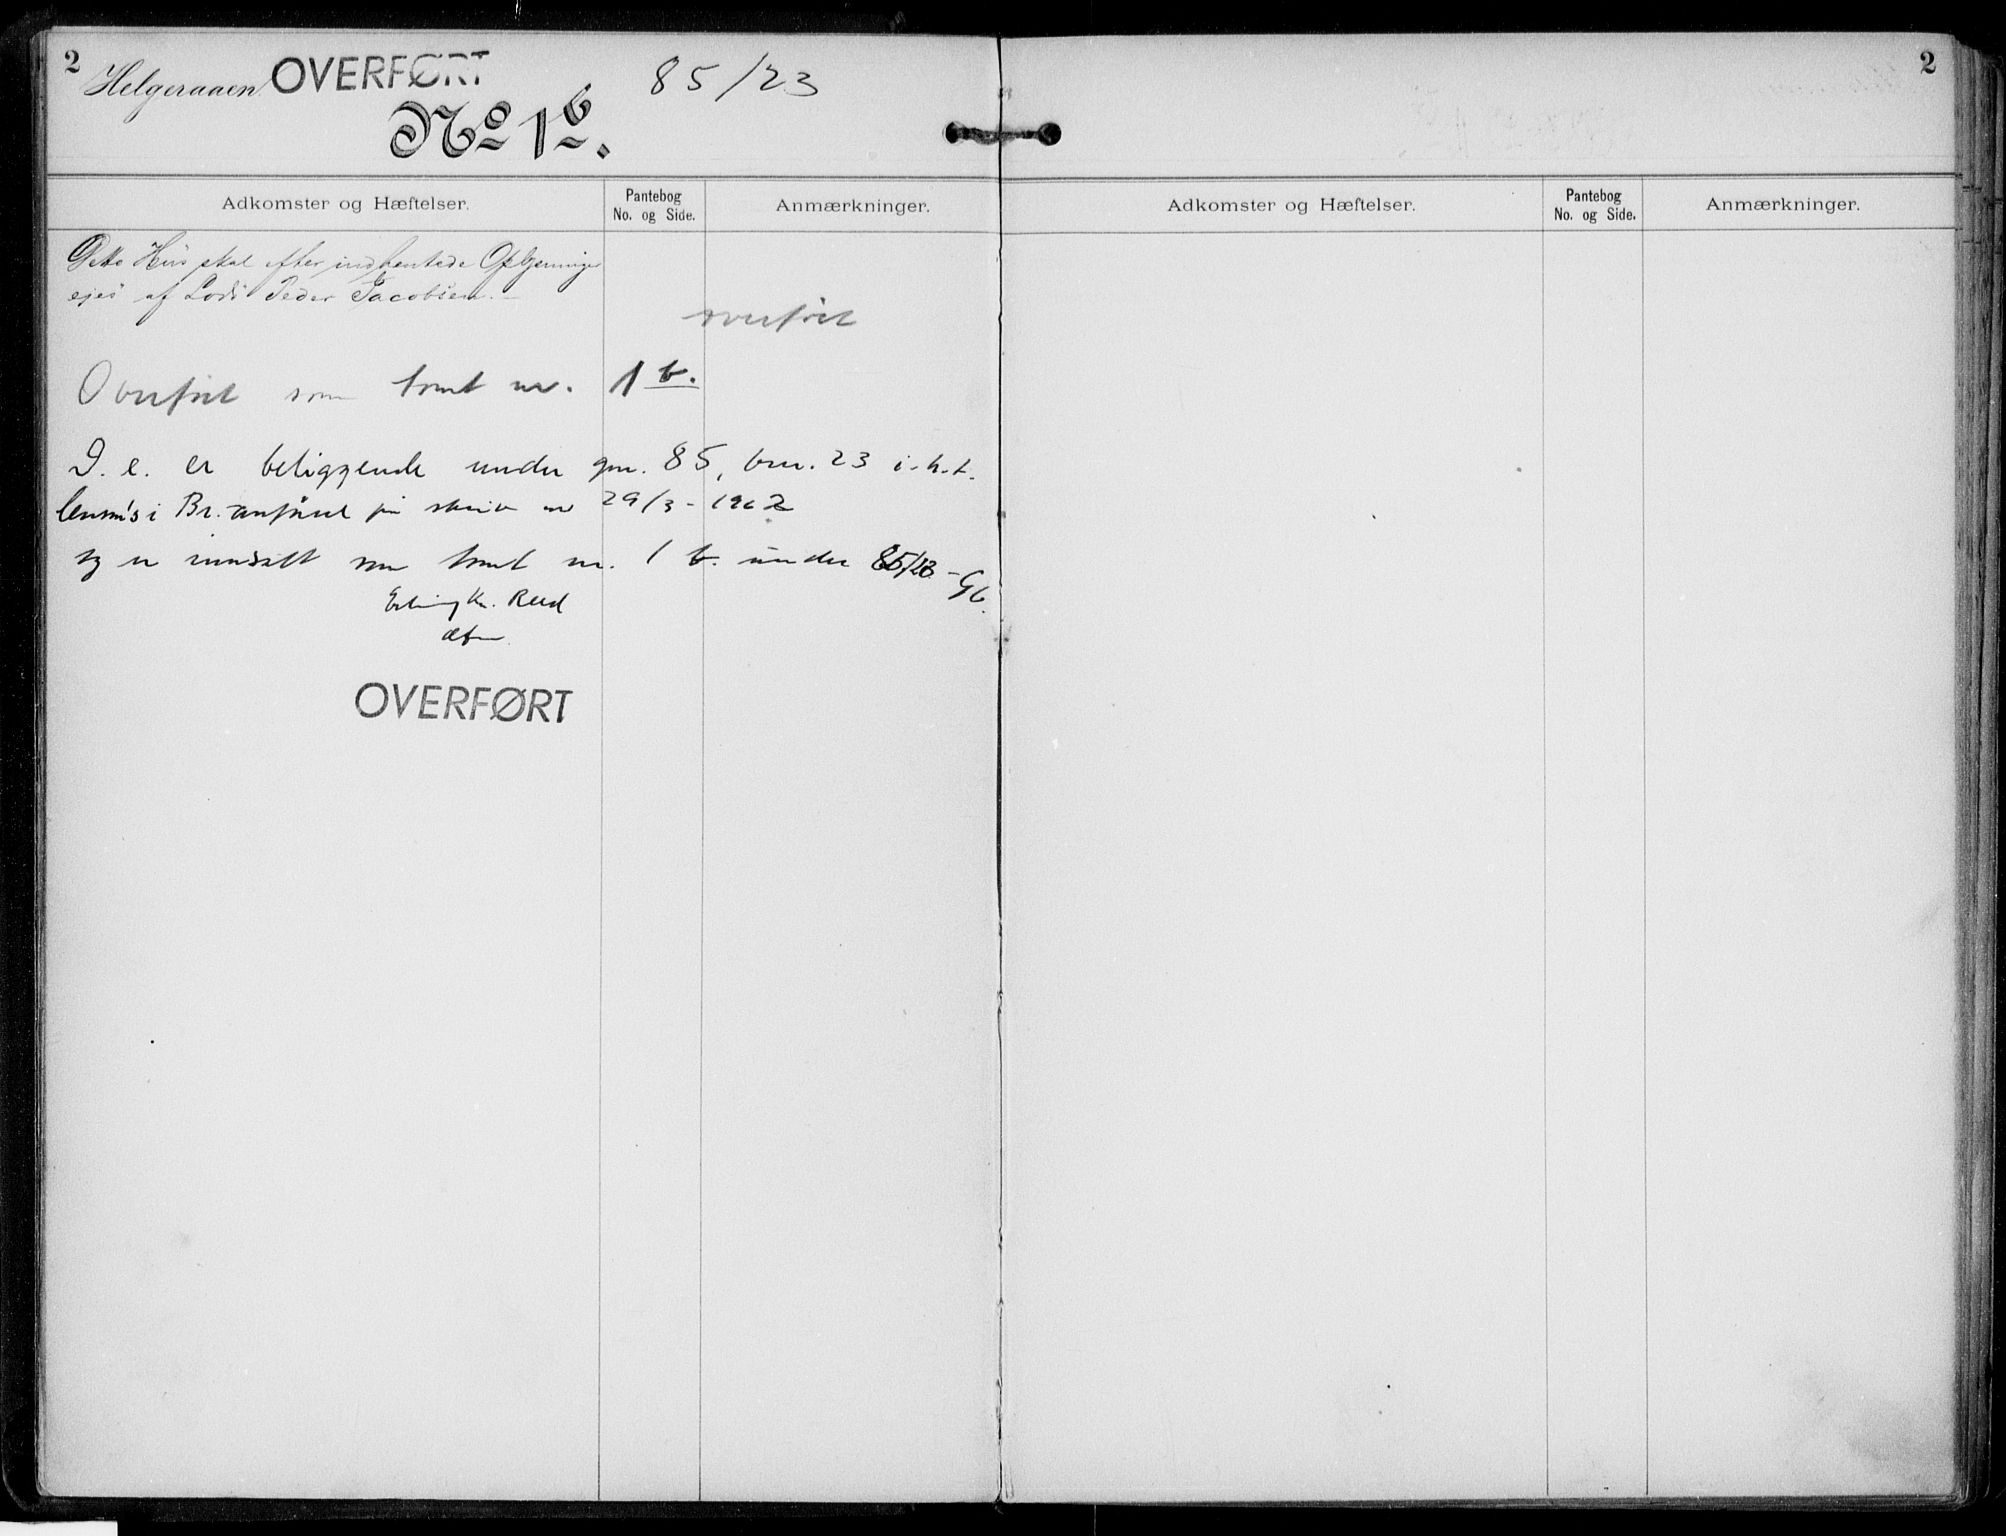 2
Helgeraaen OVERFØRT 85/23
No 1b.
2
Adkomster og Hæftelser.
Pantebog
No. og Side.
Anmærkninger.
Adkomster og Hæftelser.
Pantebog
No. og Side.
Anmærkninger.
Dette Hus skal efter indhentede Oplysninger
ejes af Lods Peder Jacobsen.
overført
Overført som tomt nr. 1 b.
D. e. er beliggende under gnr. 85, bnr. 23 i.h.t.
lensm's i Br. 29/3-1962
og er innsatt som tomt nr. 1 b. under 85/23
OVERFØRT